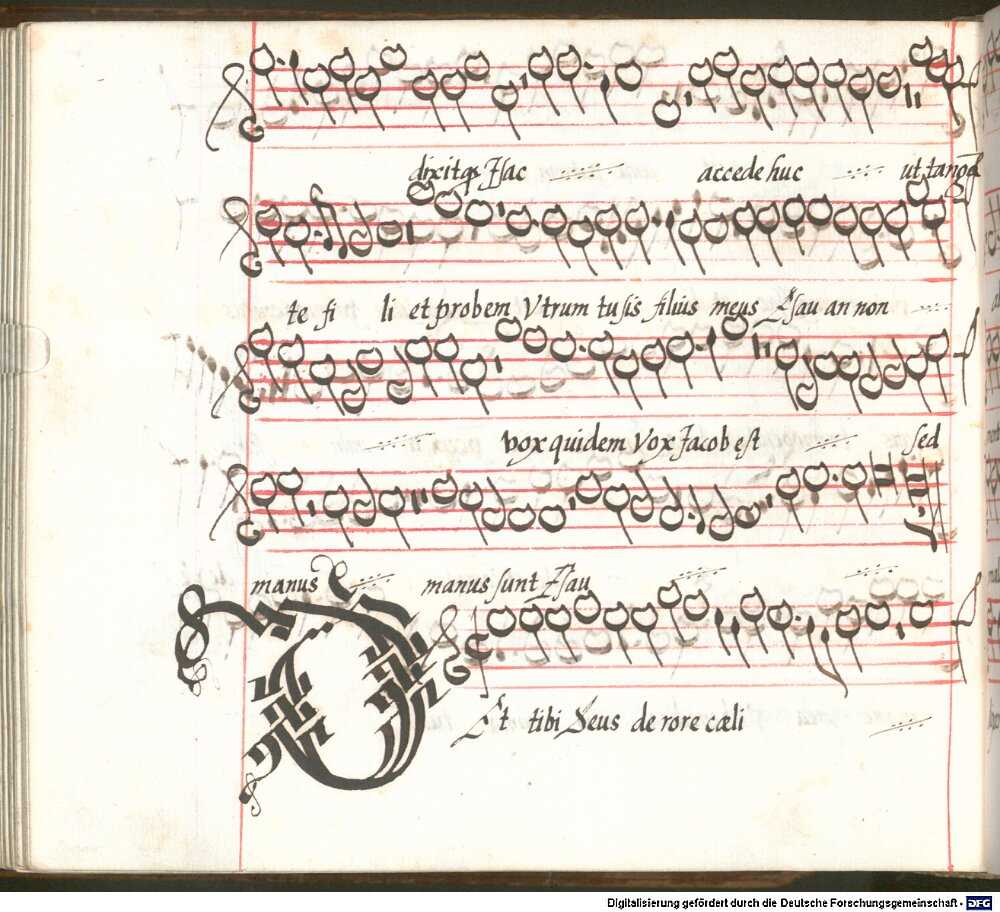 dixitqs Isac accede huc ut tangā
te fi li et probem Vtrum tu sis filius meus Esau an non
vox quidem Vox Jacob est sed
manus manus sunt Esau
Et tibi Deus de rore cæli
Digitalisierung gefördert durch die Deutsche Forschungsgemeinschaft - DFG